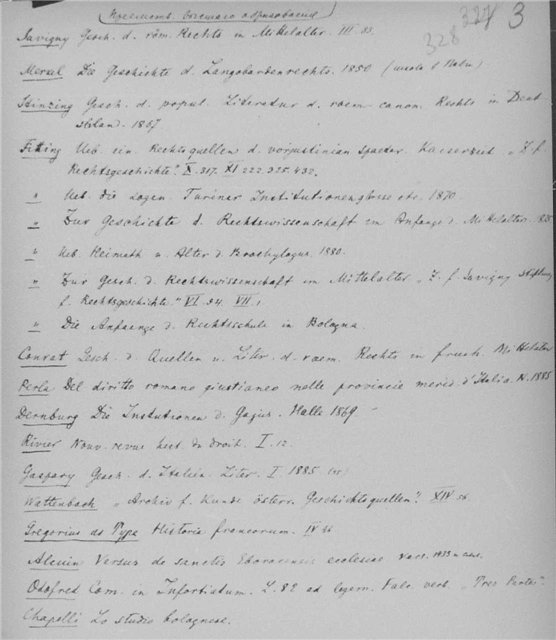 328 327 3
Savigny Gesch. d. röm. Rechts in Mittelalter. III. 83.
Merkel Die Geschichte d. Langobardenrechts. 1850
Stinzing Gesch. d. popul. Literatur d. roem canon. Rechts in Deut
schland. 1867
Fitting Ueb. ein. Rechtsquellen d. vorjustinian spaeter. Kaiserzeit „Z. f.
Rechtsgeschichte". X. 317. XI 222. 325. 432.
" Ueb. die sogen. Turiner Institutionenglosse etc. 1870.
" Zur Geschichte d. Rechtswissenschaft im Anfange d. Mittelalter. 1875
" Ueb. Heimath u. Alter d. Brachylogus. 1880.
" Zur Gesch. d. Rechtswissenschaft im Mittelalter „Z. f. Savigny Stiftung
f. Rechtsgeschichte." VI. 94. VII. 1
" Die Anfaenge d. Rechtsschule in Bologna.
Conrat Gesch. d. Quellen u. Liter. d. roem. Rechts in frueh. Mittelalter
Perla Del diritto romano giustianeo nelle provincie merid. d'Italia. N. 1885
Dernburg Die Institutionen d. Gajus. Halle 1869.
Rivier Nouv. revue hist. de droit. I. 12.
Gaspary Gesch. d. Italien. Liter. I. 1885
Wattenbach „Archiv f. Kunde österr. Geschichtsquellen". XIV. 56
Gregorius Historia francorum. IV.
Alcuin Versus de sanctis Eboracensis ecclesiae 1433
Odofred Com. in Infortiatum. L. 82 ad legem. Falc. verb. „Tres Partes".
Chapelli Lo studio bolognese.